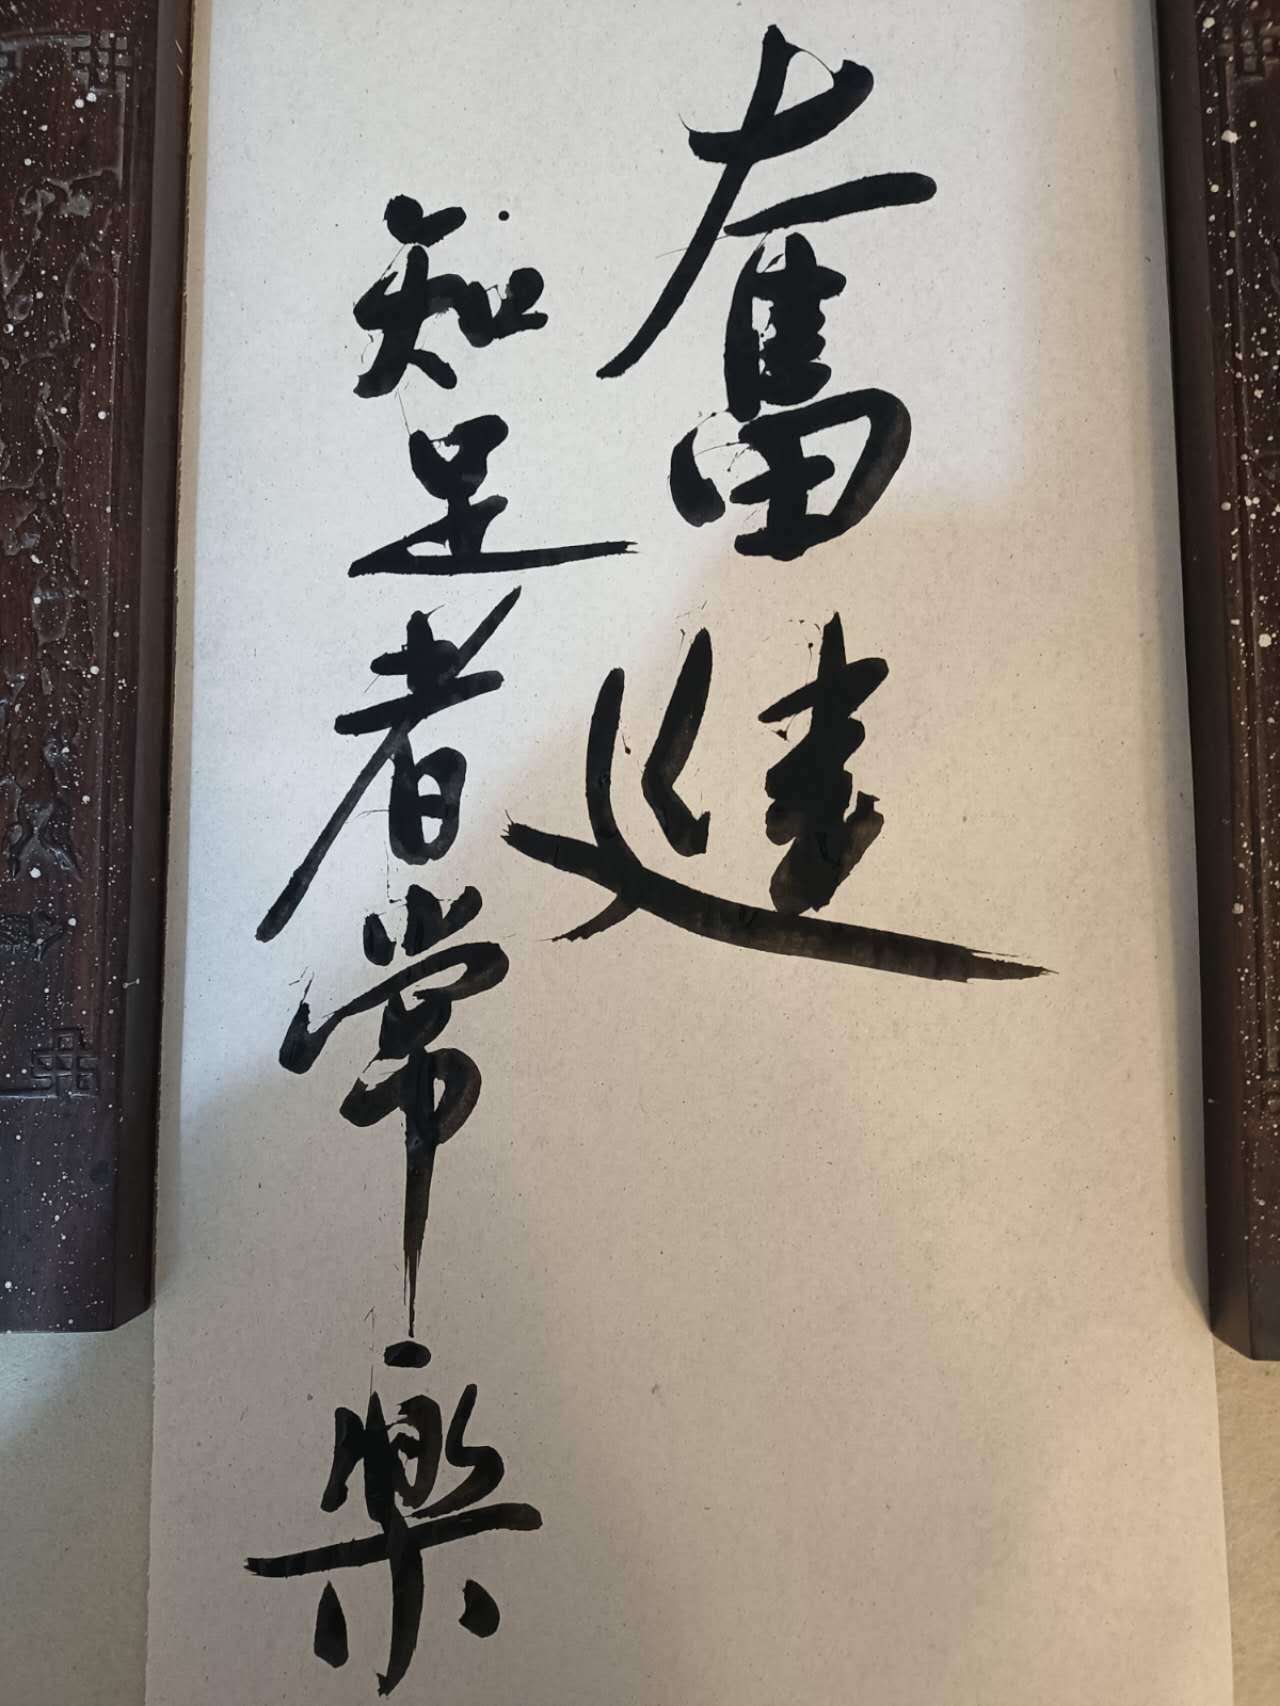 奮進
知足者常樂